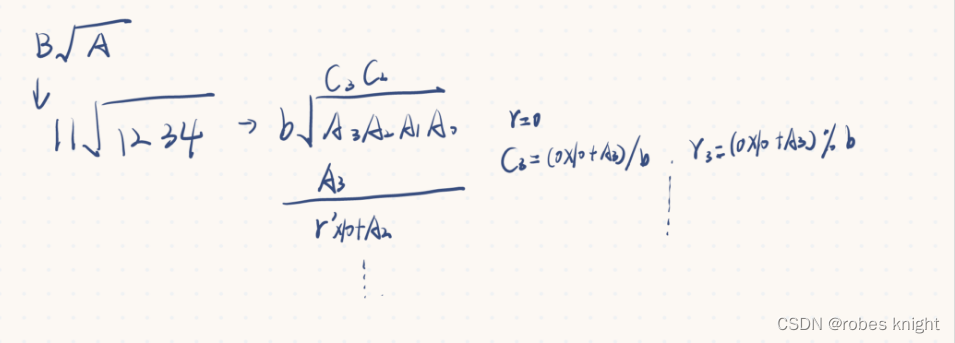 B√A
↓
11√1234 → b√A₃A₂A₁A₀
C₃C₂
A₃
r'×10+A₂
r=0
C₃=(0×10+A₃)/b , r₃=(0×10+A₃)%b
CSDN @robes knight